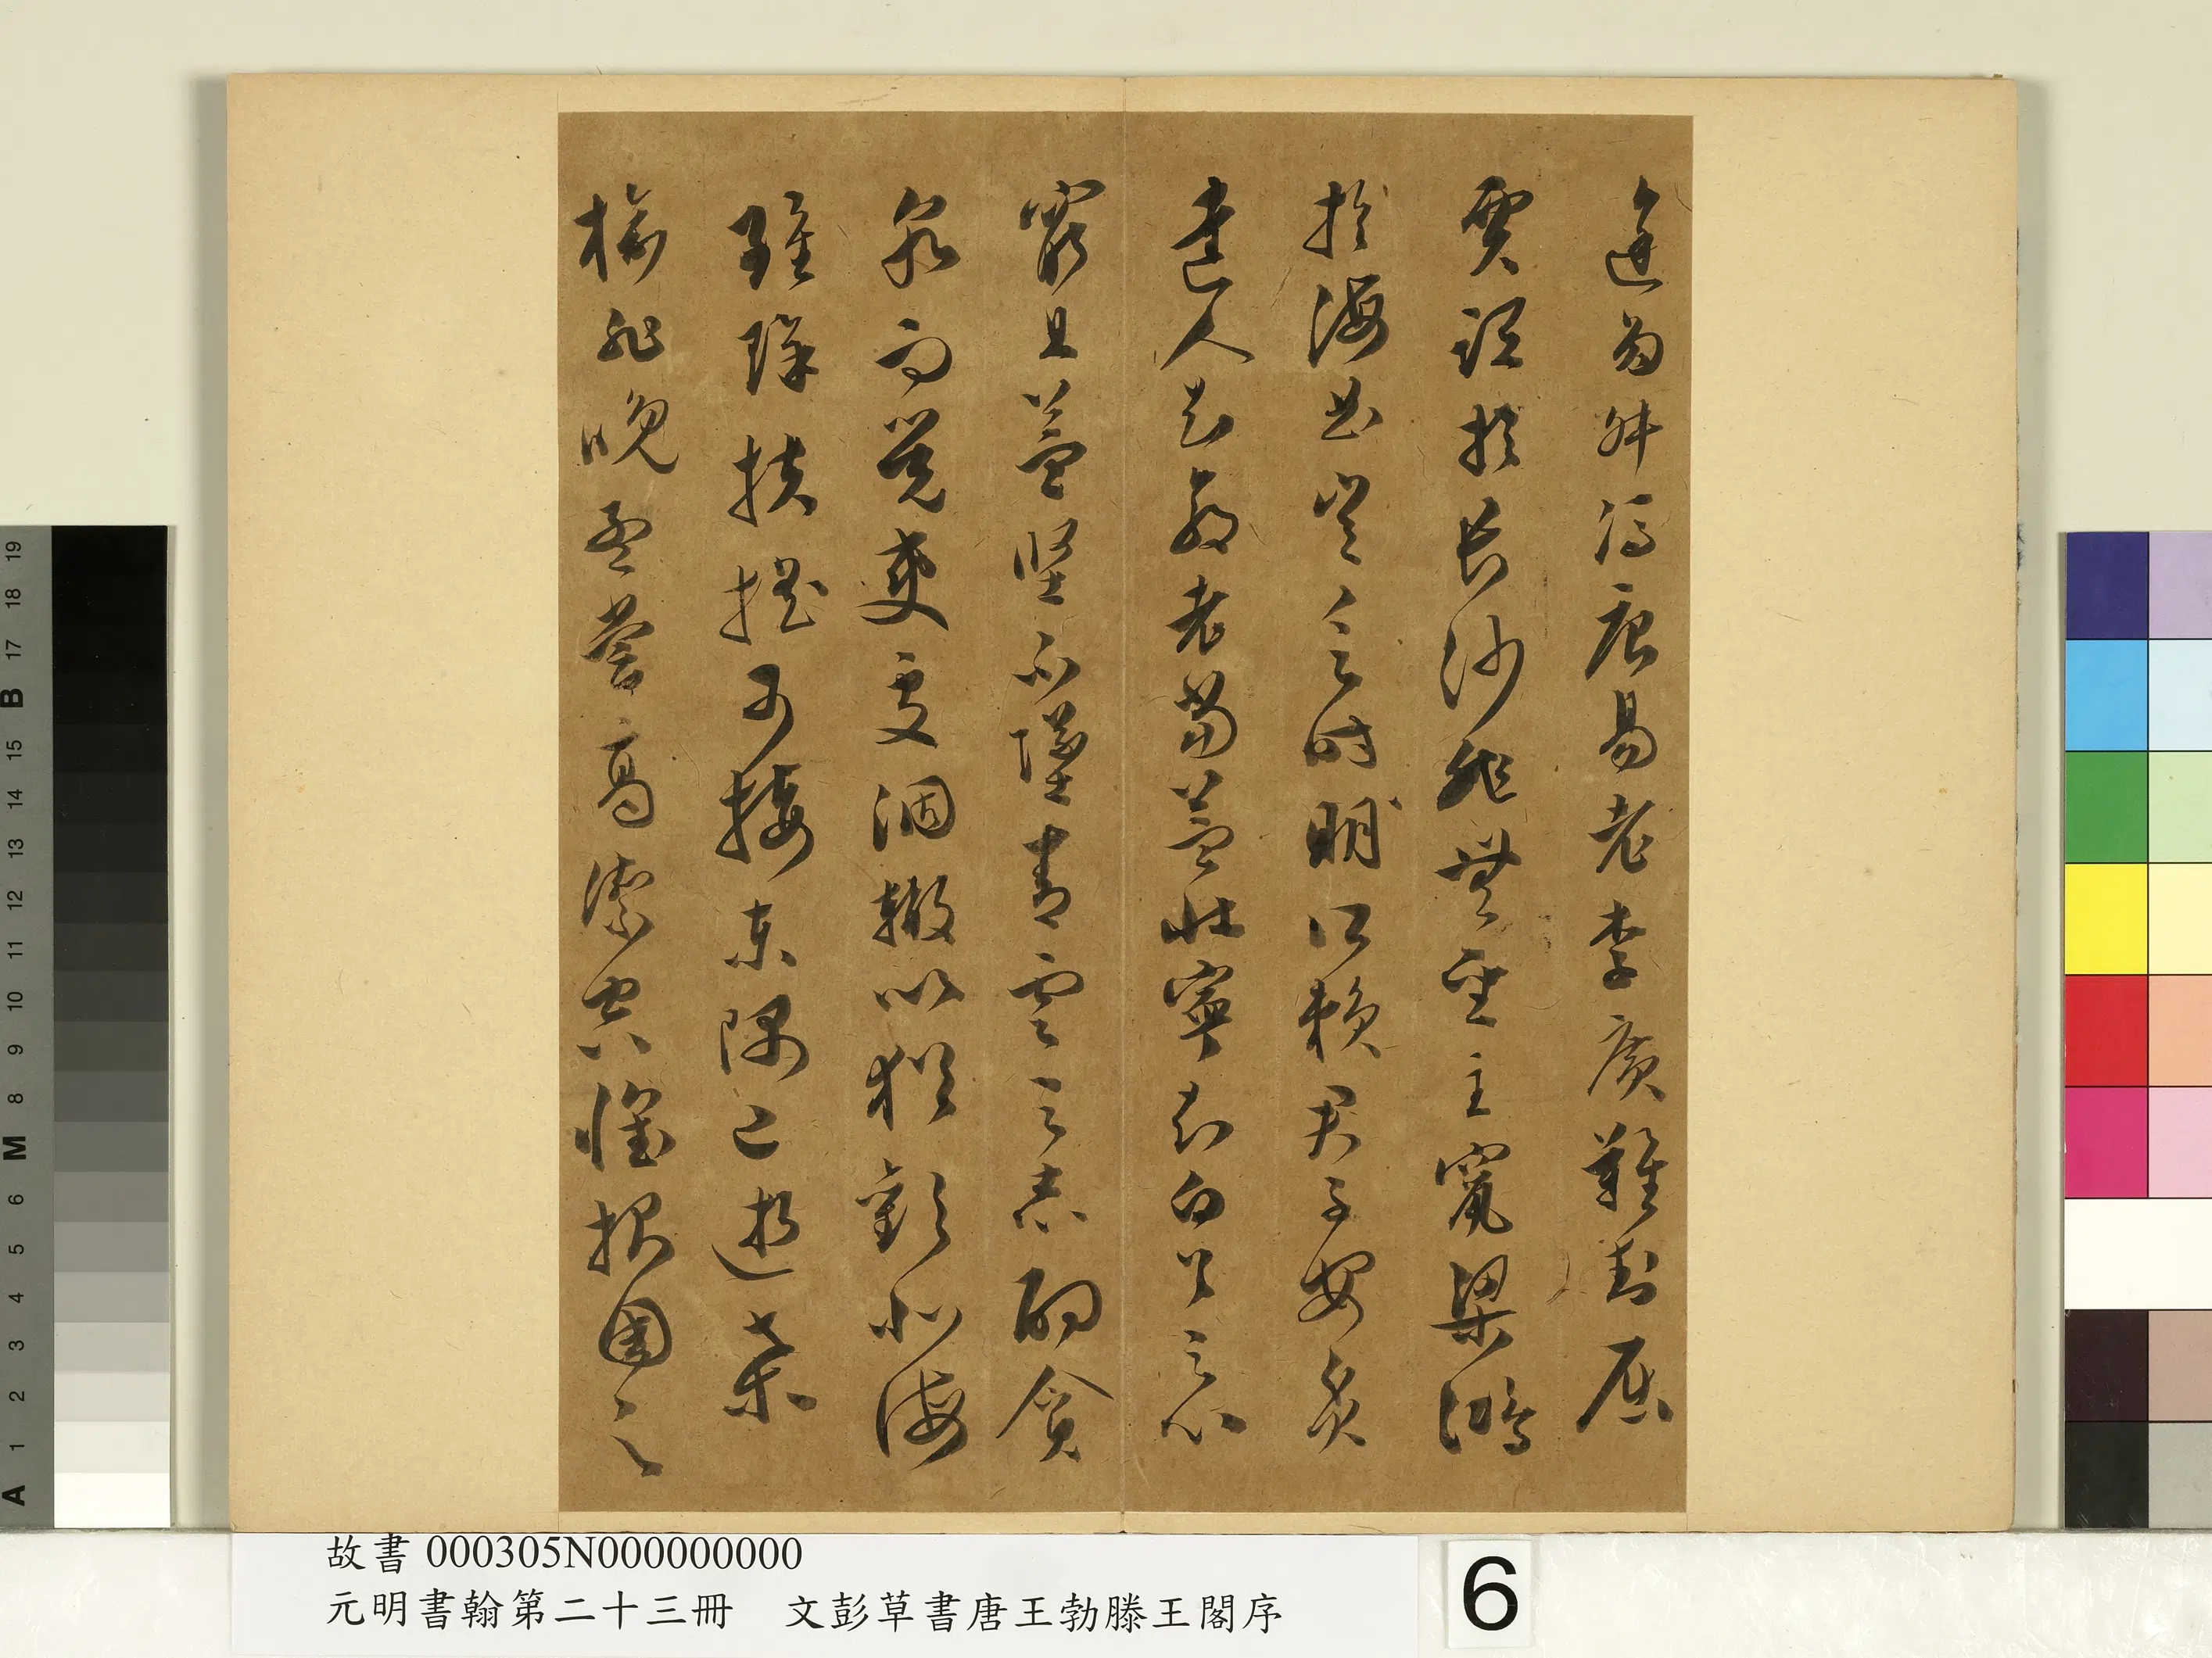 途多舛馮唐易老李廣難封屈
賈誼於長沙非無聖主竄梁鴻
於海曲豈乏時明所賴君子安貧
達人知命老當益壯寧知白首之心
窮且益堅不墜青雲之志酌貪
泉而覺爽處涸轍以猶歡北海
雖賒扶搖可接東隅已逝桑
榆非晚孟嘗高潔空懷報國之
故書 000305N000000000
元明書翰第二十三冊 文彭草書唐王勃滕王閣序
6
A 1 2 3 4 5 6 M 8 9 10 11 12 13 14 15 B 17 18 19